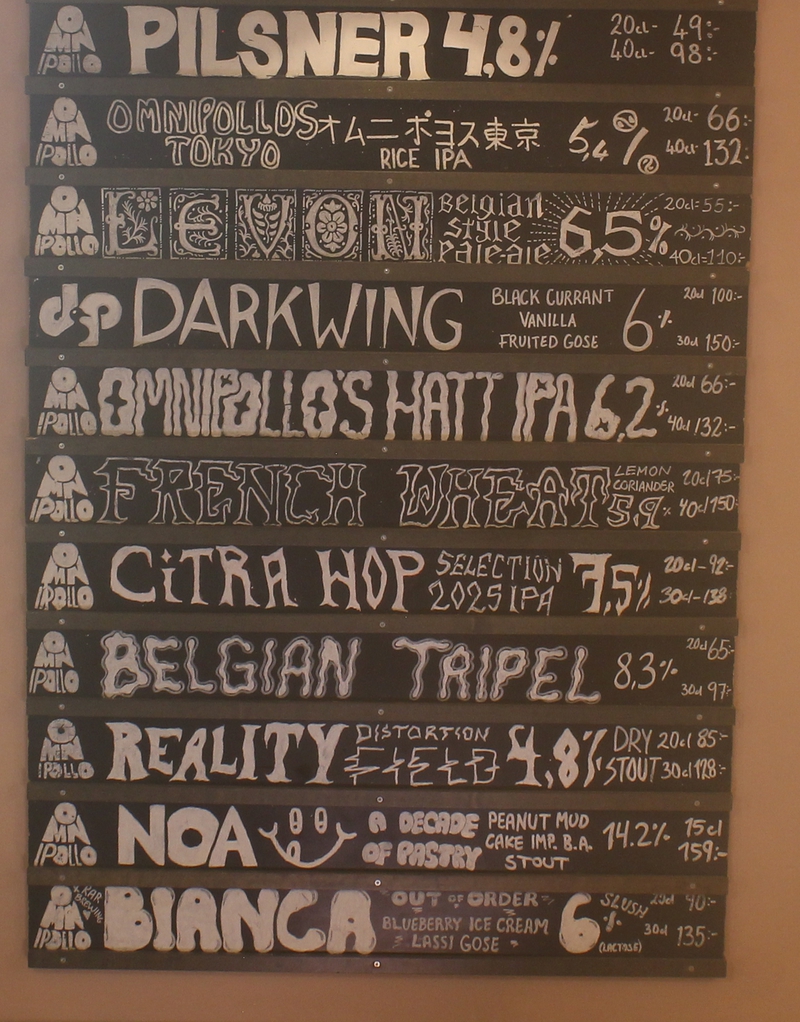 OMNIPOLLO PILSNER 4,8% 20cl- 49:-
40cl- 98:-
OMNIPOLLO OMNIPOLLOS オムニポヨス東京 5,4% 20cl- 66:-
TOKYO RICE IPA 40cl- 132:-
OMNIPOLLO LEVON Belgian style Pale-ale 6,5% 20cl=55:-
40cl=110:-
dp DARKWING BLACK CURRANT 6% 20cl 100:-
VANILLA
FRUITED GOSE 30cl 150:-
OMNIPOLLO OMNIPOLLO'S HATT IPA 6,2% 20cl 66:-
40cl 132:-
OMNIPOLLO FRENCH WHEAT LEMON 20cl/75:-
CORIANDER
5,9% 40cl/150:-
OMNIPOLLO CiTRA HOP SELECTION 7,5% 20cl-92:-
2025 IPA 30cl-138:-
OMNIPOLLO BELGIAN TRIPEL 8,3% 20cl 65:-
30cl 97:-
OMNIPOLLO REALITY DISTORTION 4,8% DRY 20cl 85:-
FIELD STOUT 30cl 128:-
OMNIPOLLO NOA A DECADE PEANUT MUD 14.2% 15cl
OF PASTRY CAKE IMP. B.A. 159:-
STOUT
OMNIPOLLO + KAR BREWING BIANCA OUT OF ORDER 6% SLUSH
BLUEBERRY ICE CREAM 30cl 135:-
LASSI GOSE (LACTOSE)